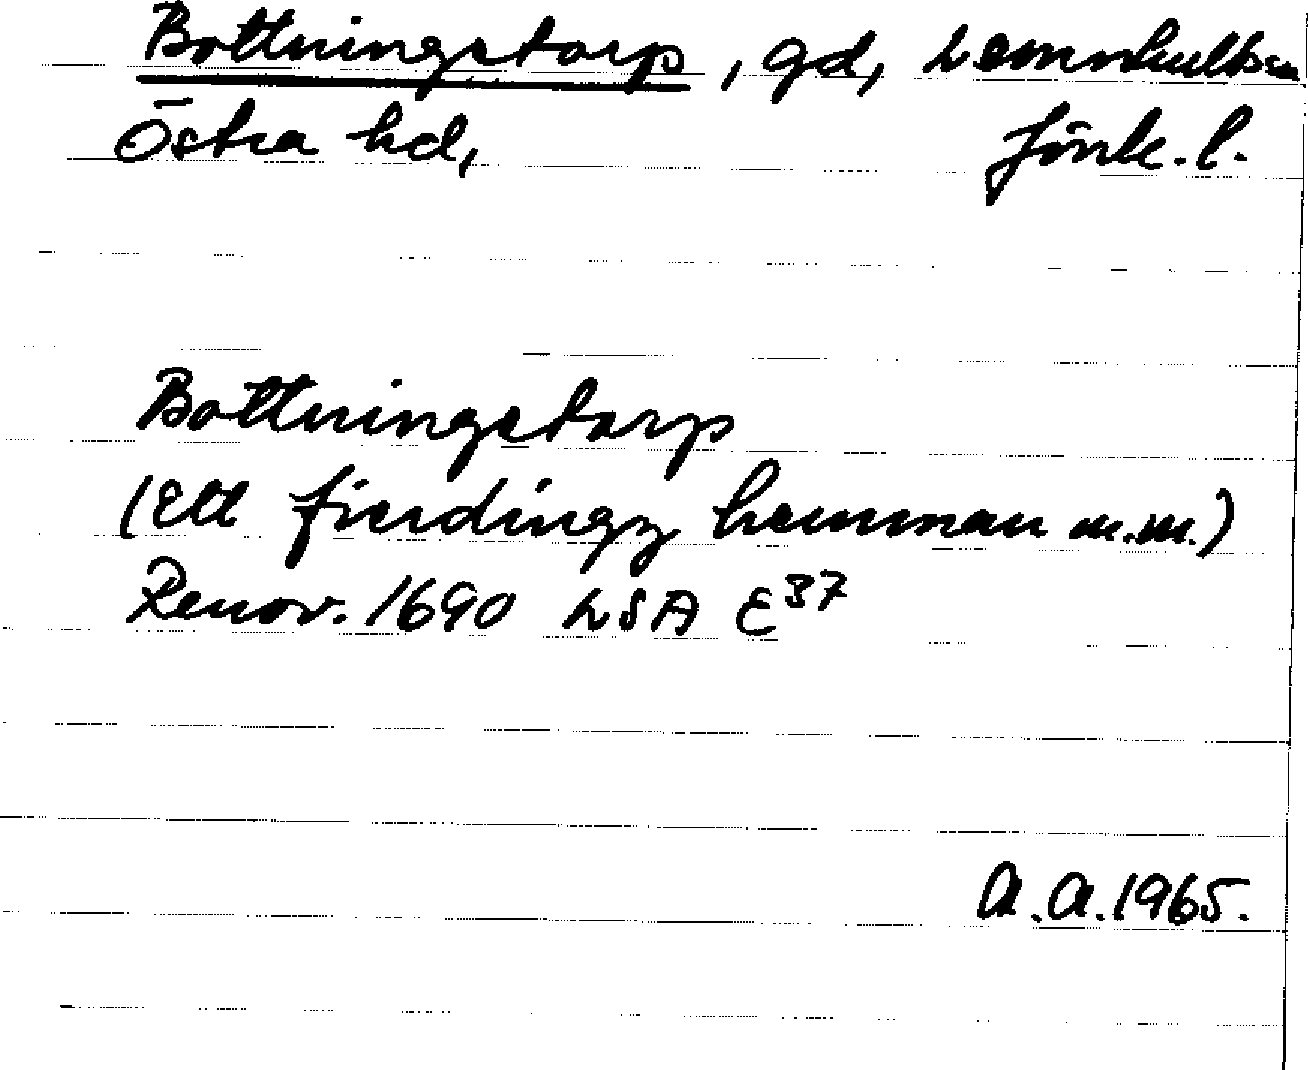 Bottningstorp, gd, Lemnhults sn
Östra hd, Jönk. l.
Bottningstorp
(Ett fierdingz hemman m.m.)
Renov. 1690 LSA E37
A.A. 1965.